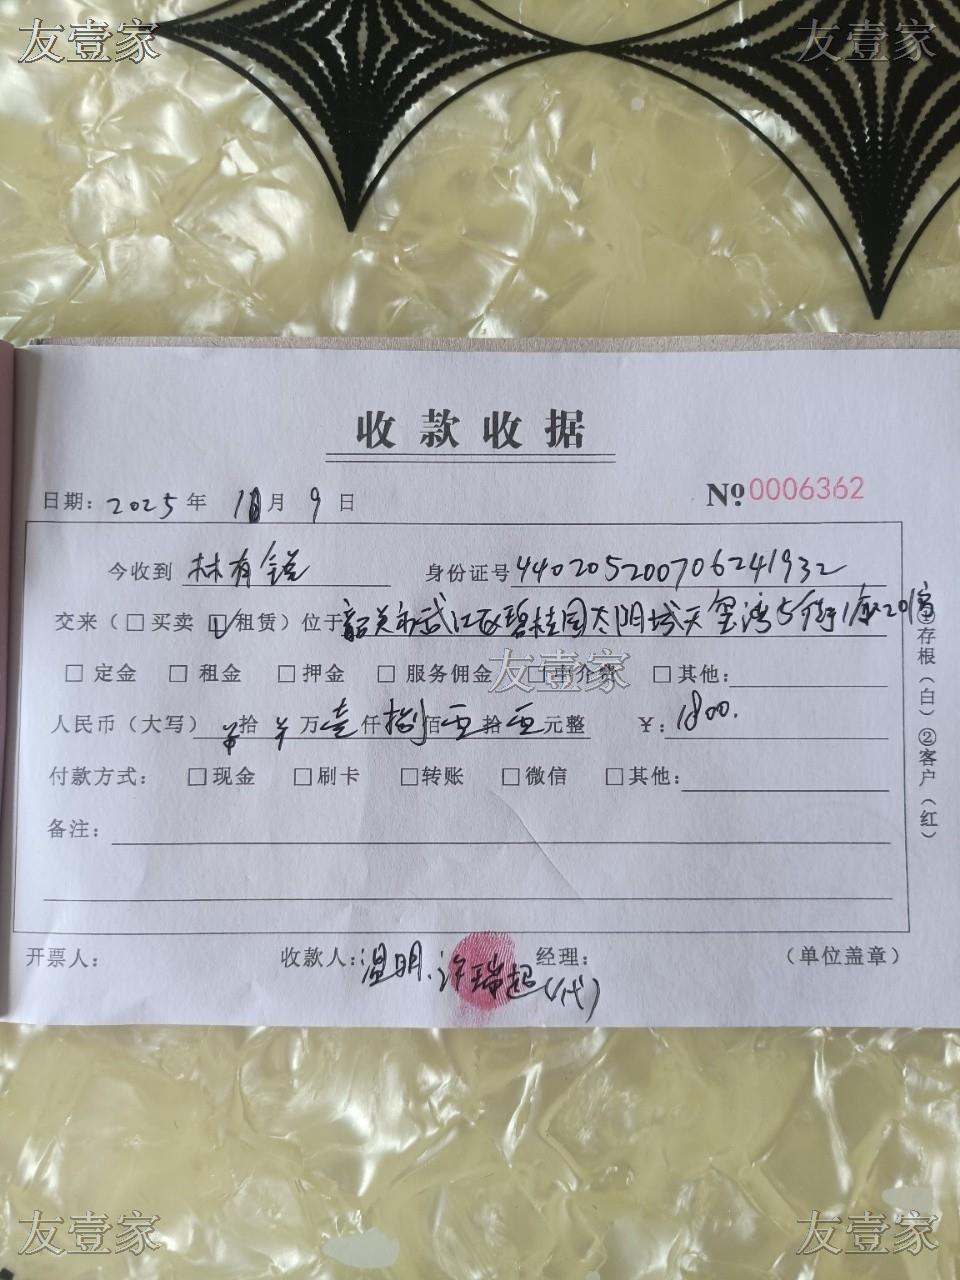 友壹家 友壹家
收款收据
日期：2025年 11月 9日 №0006362
今收到 林有锐 身份证号 440205200706241932
交来（□买卖 ☑租赁）位于韶关市武江区碧桂园太阳城天玺湾5街1座201房
□定金 □租金 □押金 □服务佣金 □中介费 □其他：
友壹家
人民币（大写） 拾 万壹仟捌佰 拾 元整 ￥：1800.
付款方式： □现金 □刷卡 □转账 □微信 □其他：
备注：
①存根（白）②客户（红）
开票人： 收款人：温明、许瑞起（代） 经理： （单位盖章）
友壹家 友壹家